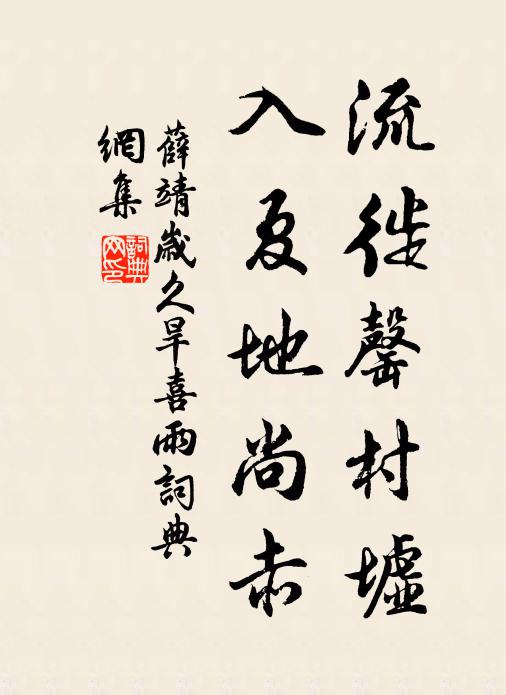 流徙罄村墟
入夏地尚赤
薛靖歲久旱喜雨詞典
網集
詞典
网印